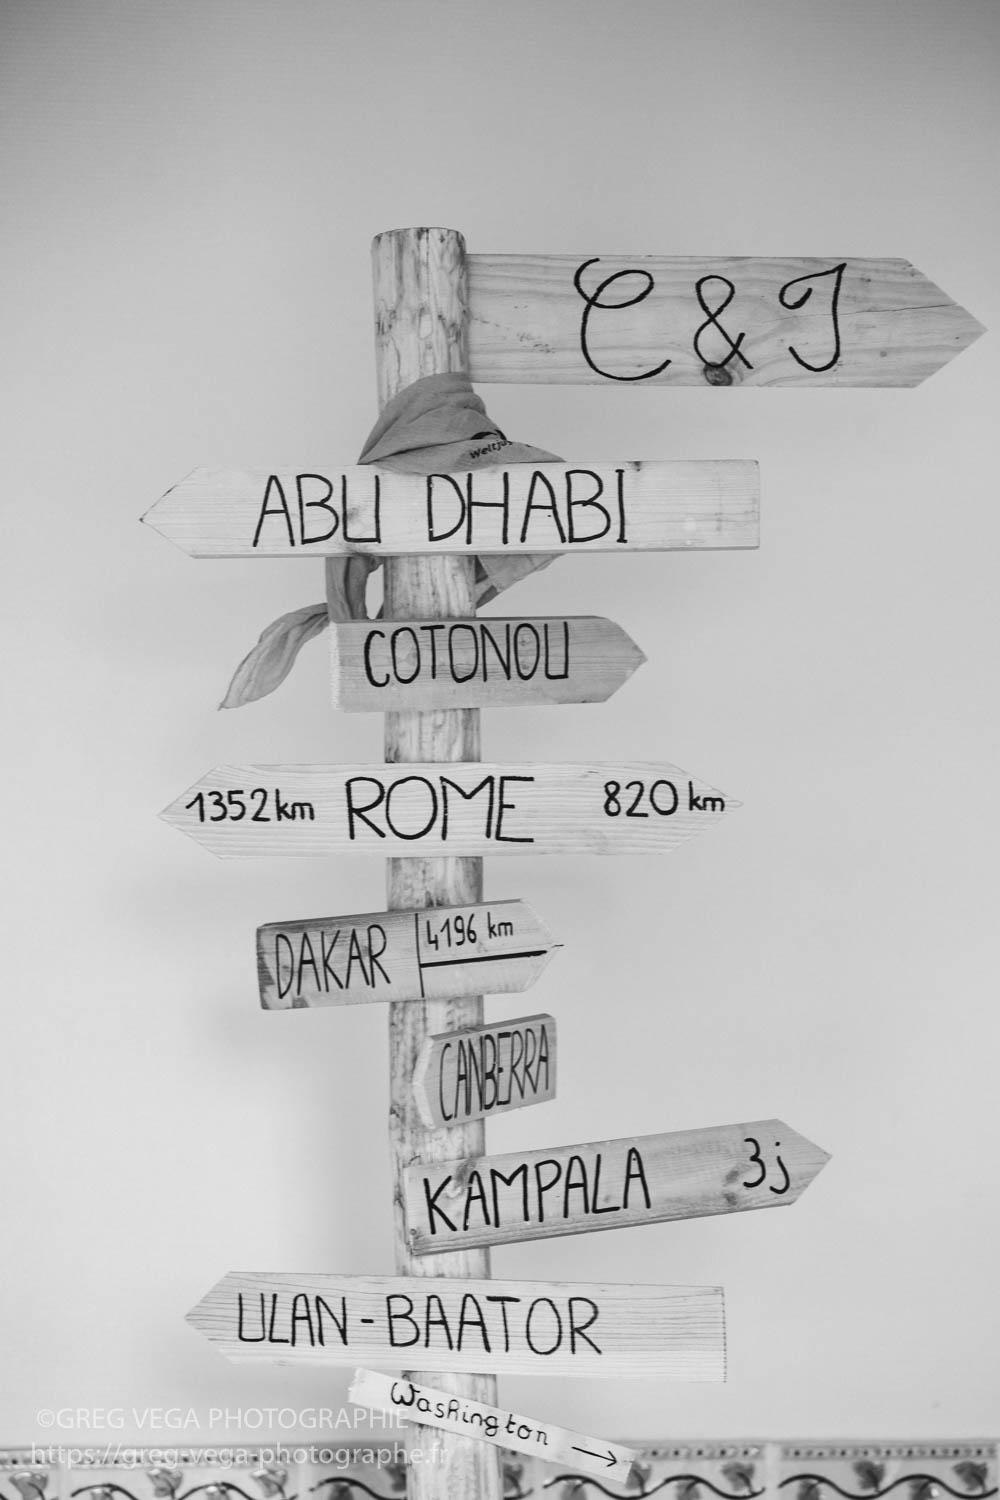 C & J
Weltju
ABU DHABI
COTONOU
1352 km ROME 820 km
DAKAR 4196 km
CANBERRA
KAMPALA 3j
ULAN-BAATOR
Washington →
©GREG VEGA PHOTOGRAPHIE
https://greg-vega-photographe.fr